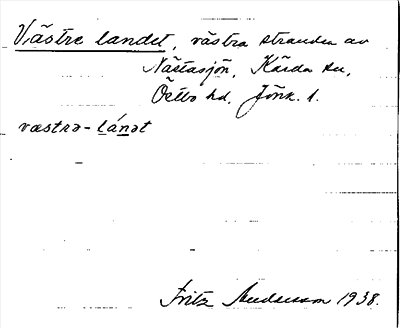 Västre landet, västra stranden av
Nästasjön, Kärda sn,
Östbo hd, Jönk. l.
væstrə-lánət
Fritz Andersson 1938.